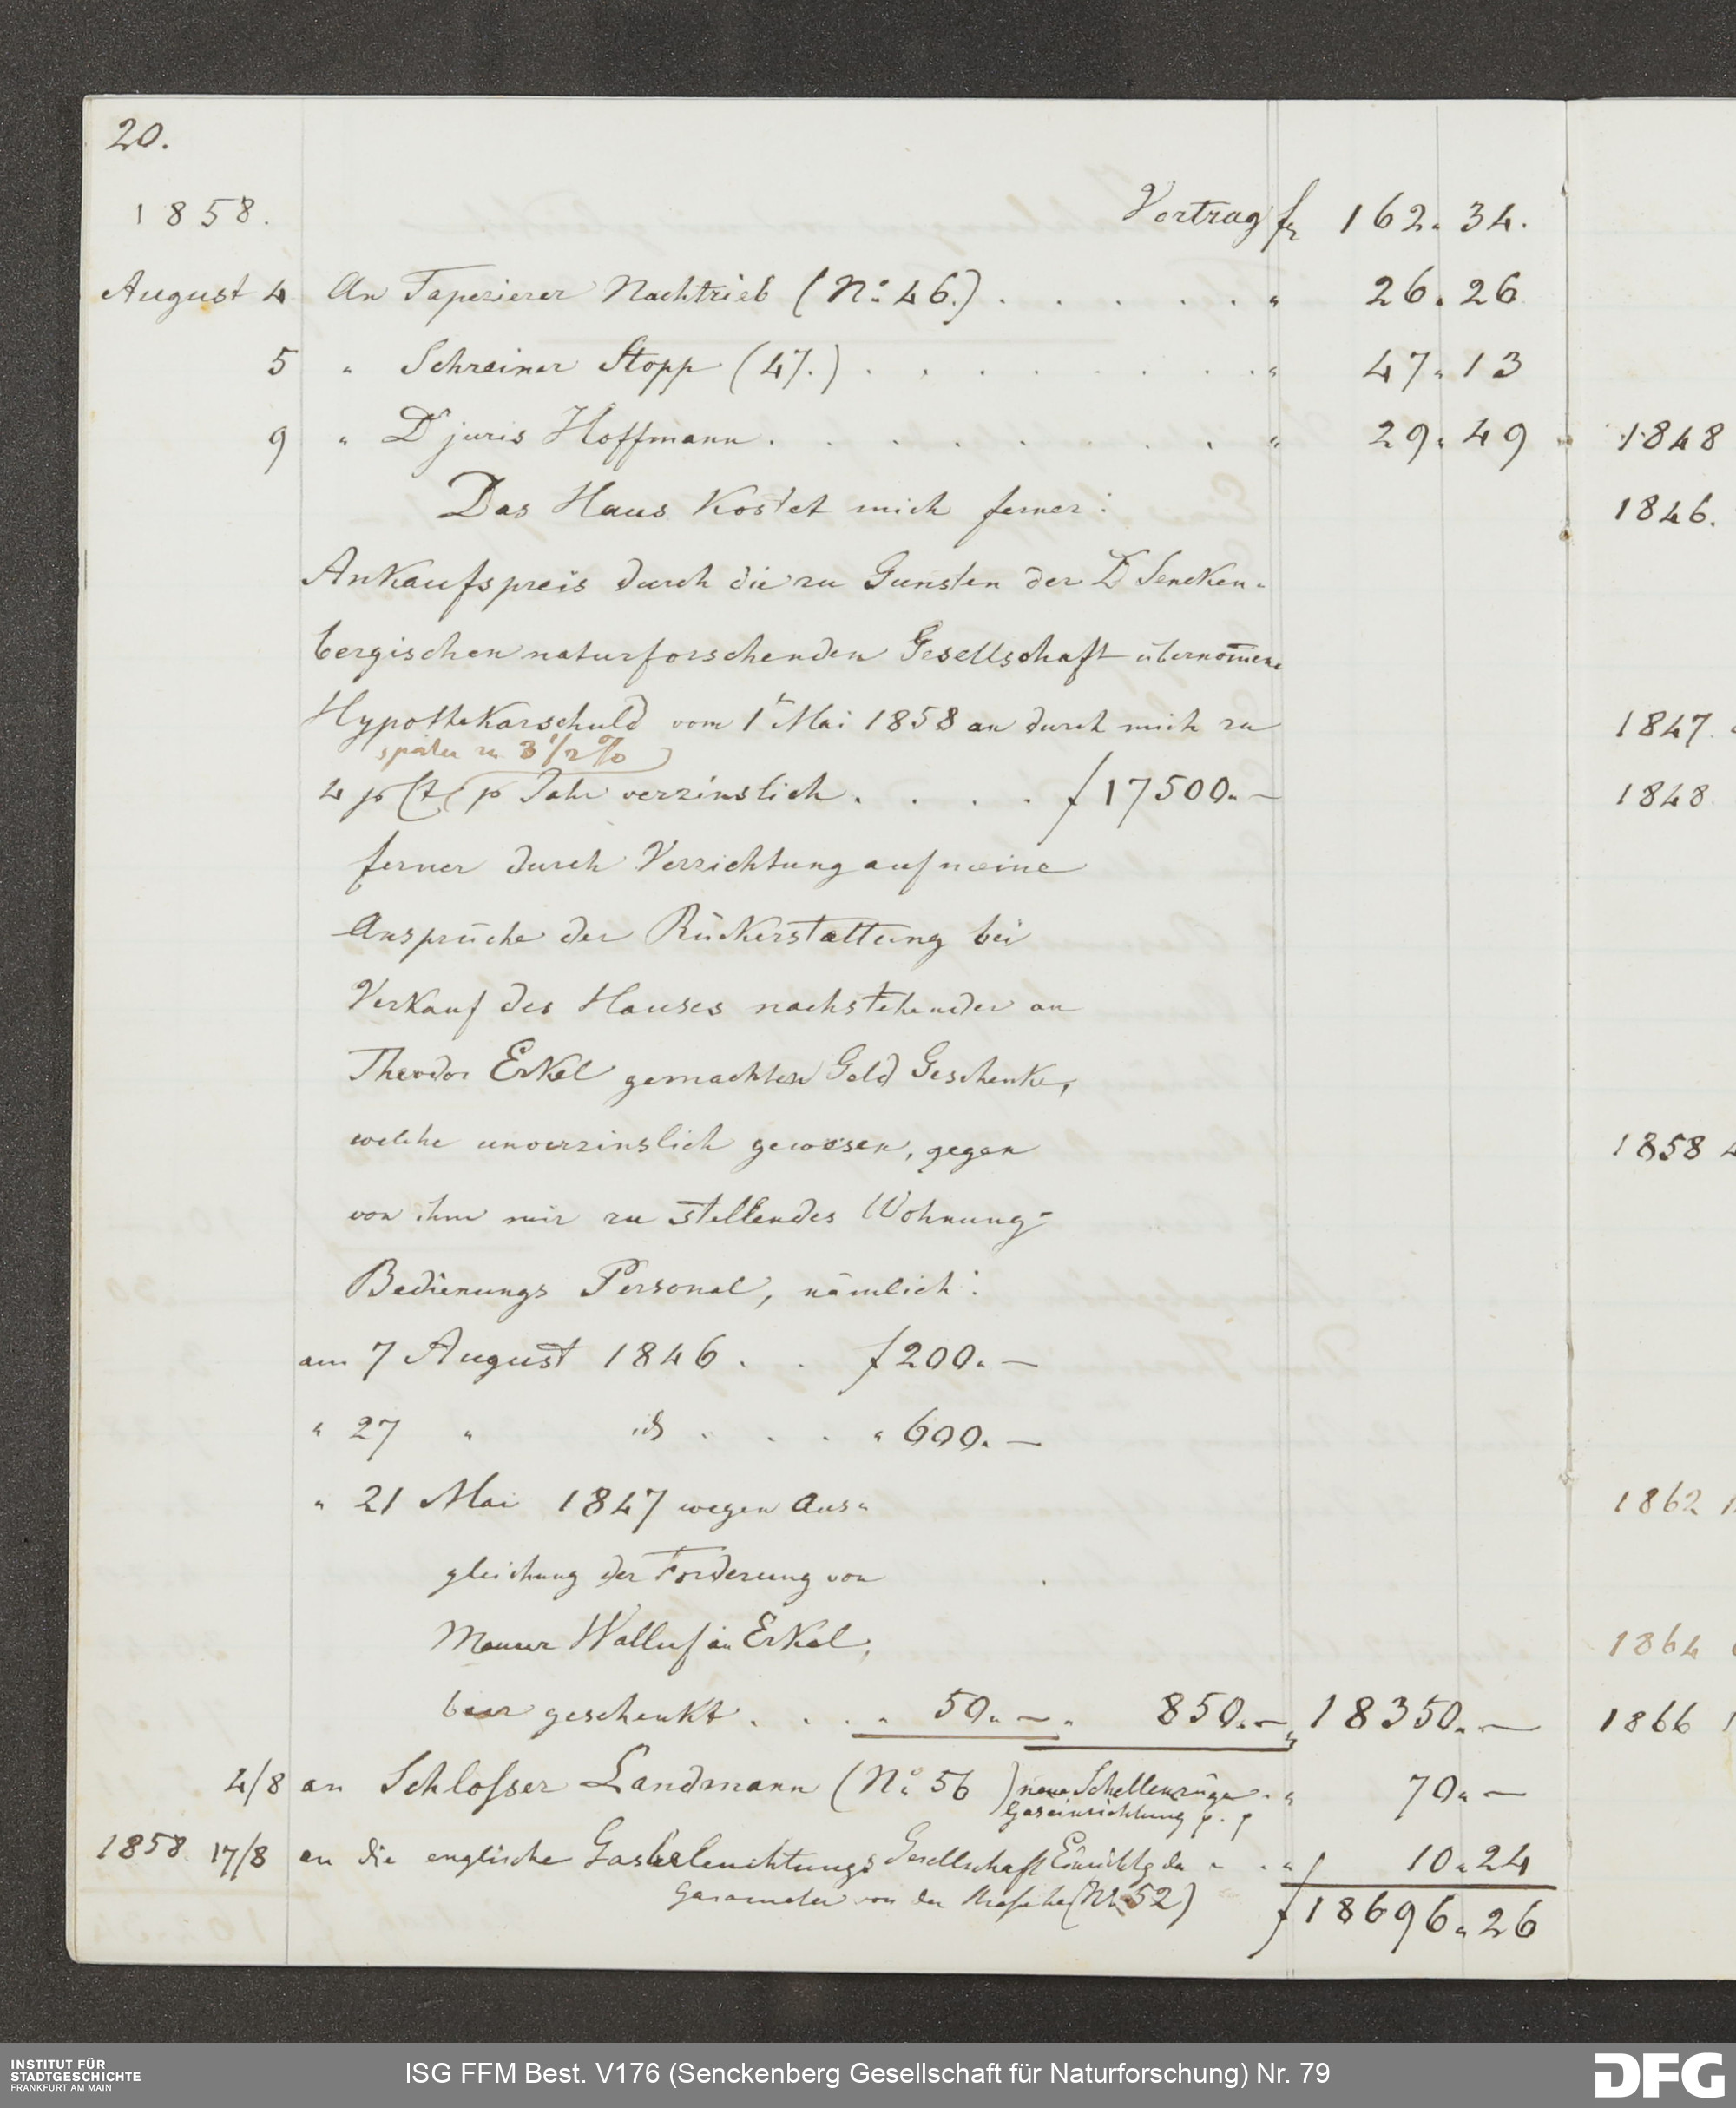 20.
1858. Vortrag f 162. 34.
August 4 An Tapezierer Nachtrieb (No: 46.) . . . . . . " 26. 26
5 " Schreiner Stopp (47.) . . . . . . . . " 47. 13
9 " Dr juris Hoffmann . . . . . . . . " 29. 49
Das Haus kostet mich ferner:
Ankaufspreis durch die zu Gunsten der Dr Sencken-
bergischen naturforschenden Gesellschaft übernom̄ene
Hypothekarschuld vom 1t Mai 1858 an durch mich zu
später zu 3 1/2 %
4 p Ct p Jahr verzinslich . . . . f 17500. —
ferner durch Verzichtung auf meine
Ansprüche der Rückerstattung bei
Verkauf des Hauses nachstehender an
Theodor Erkel gemachten Geld Geschenke,
welche unverzinslich gewesen, gegen
von ihm mir zu stellendes Wohnung-
Bedienungs Personal, nämlich:
am 7 August 1846 . . f 200. —
" 27 " id . . . " 600. —
" 21 Mai 1847 wegen Aus-
gleichung der Forderung von
Maurer Walluf an Erkel,
baar geschenkt . . . . 50. — " 850. — " 18350. —
4/8 an Schlosser Landmann (No. 56) neue Schellenzüge . " 70. —
Gaseinrichtung p. p
1858. 17/8 an die englische Gasbeleuchtungs Gesellschaft Einrichtg des . . " 10. 24
Gasometer von der (No 52)
f 18696. 26
1848
1846.
1847.
1848
1858 4
1862
1864
1866
INSTITUT FÜR
STADTGESCHICHTE
FRANKFURT AM MAIN
ISG FFM Best. V176 (Senckenberg Gesellschaft für Naturforschung) Nr. 79
DFG